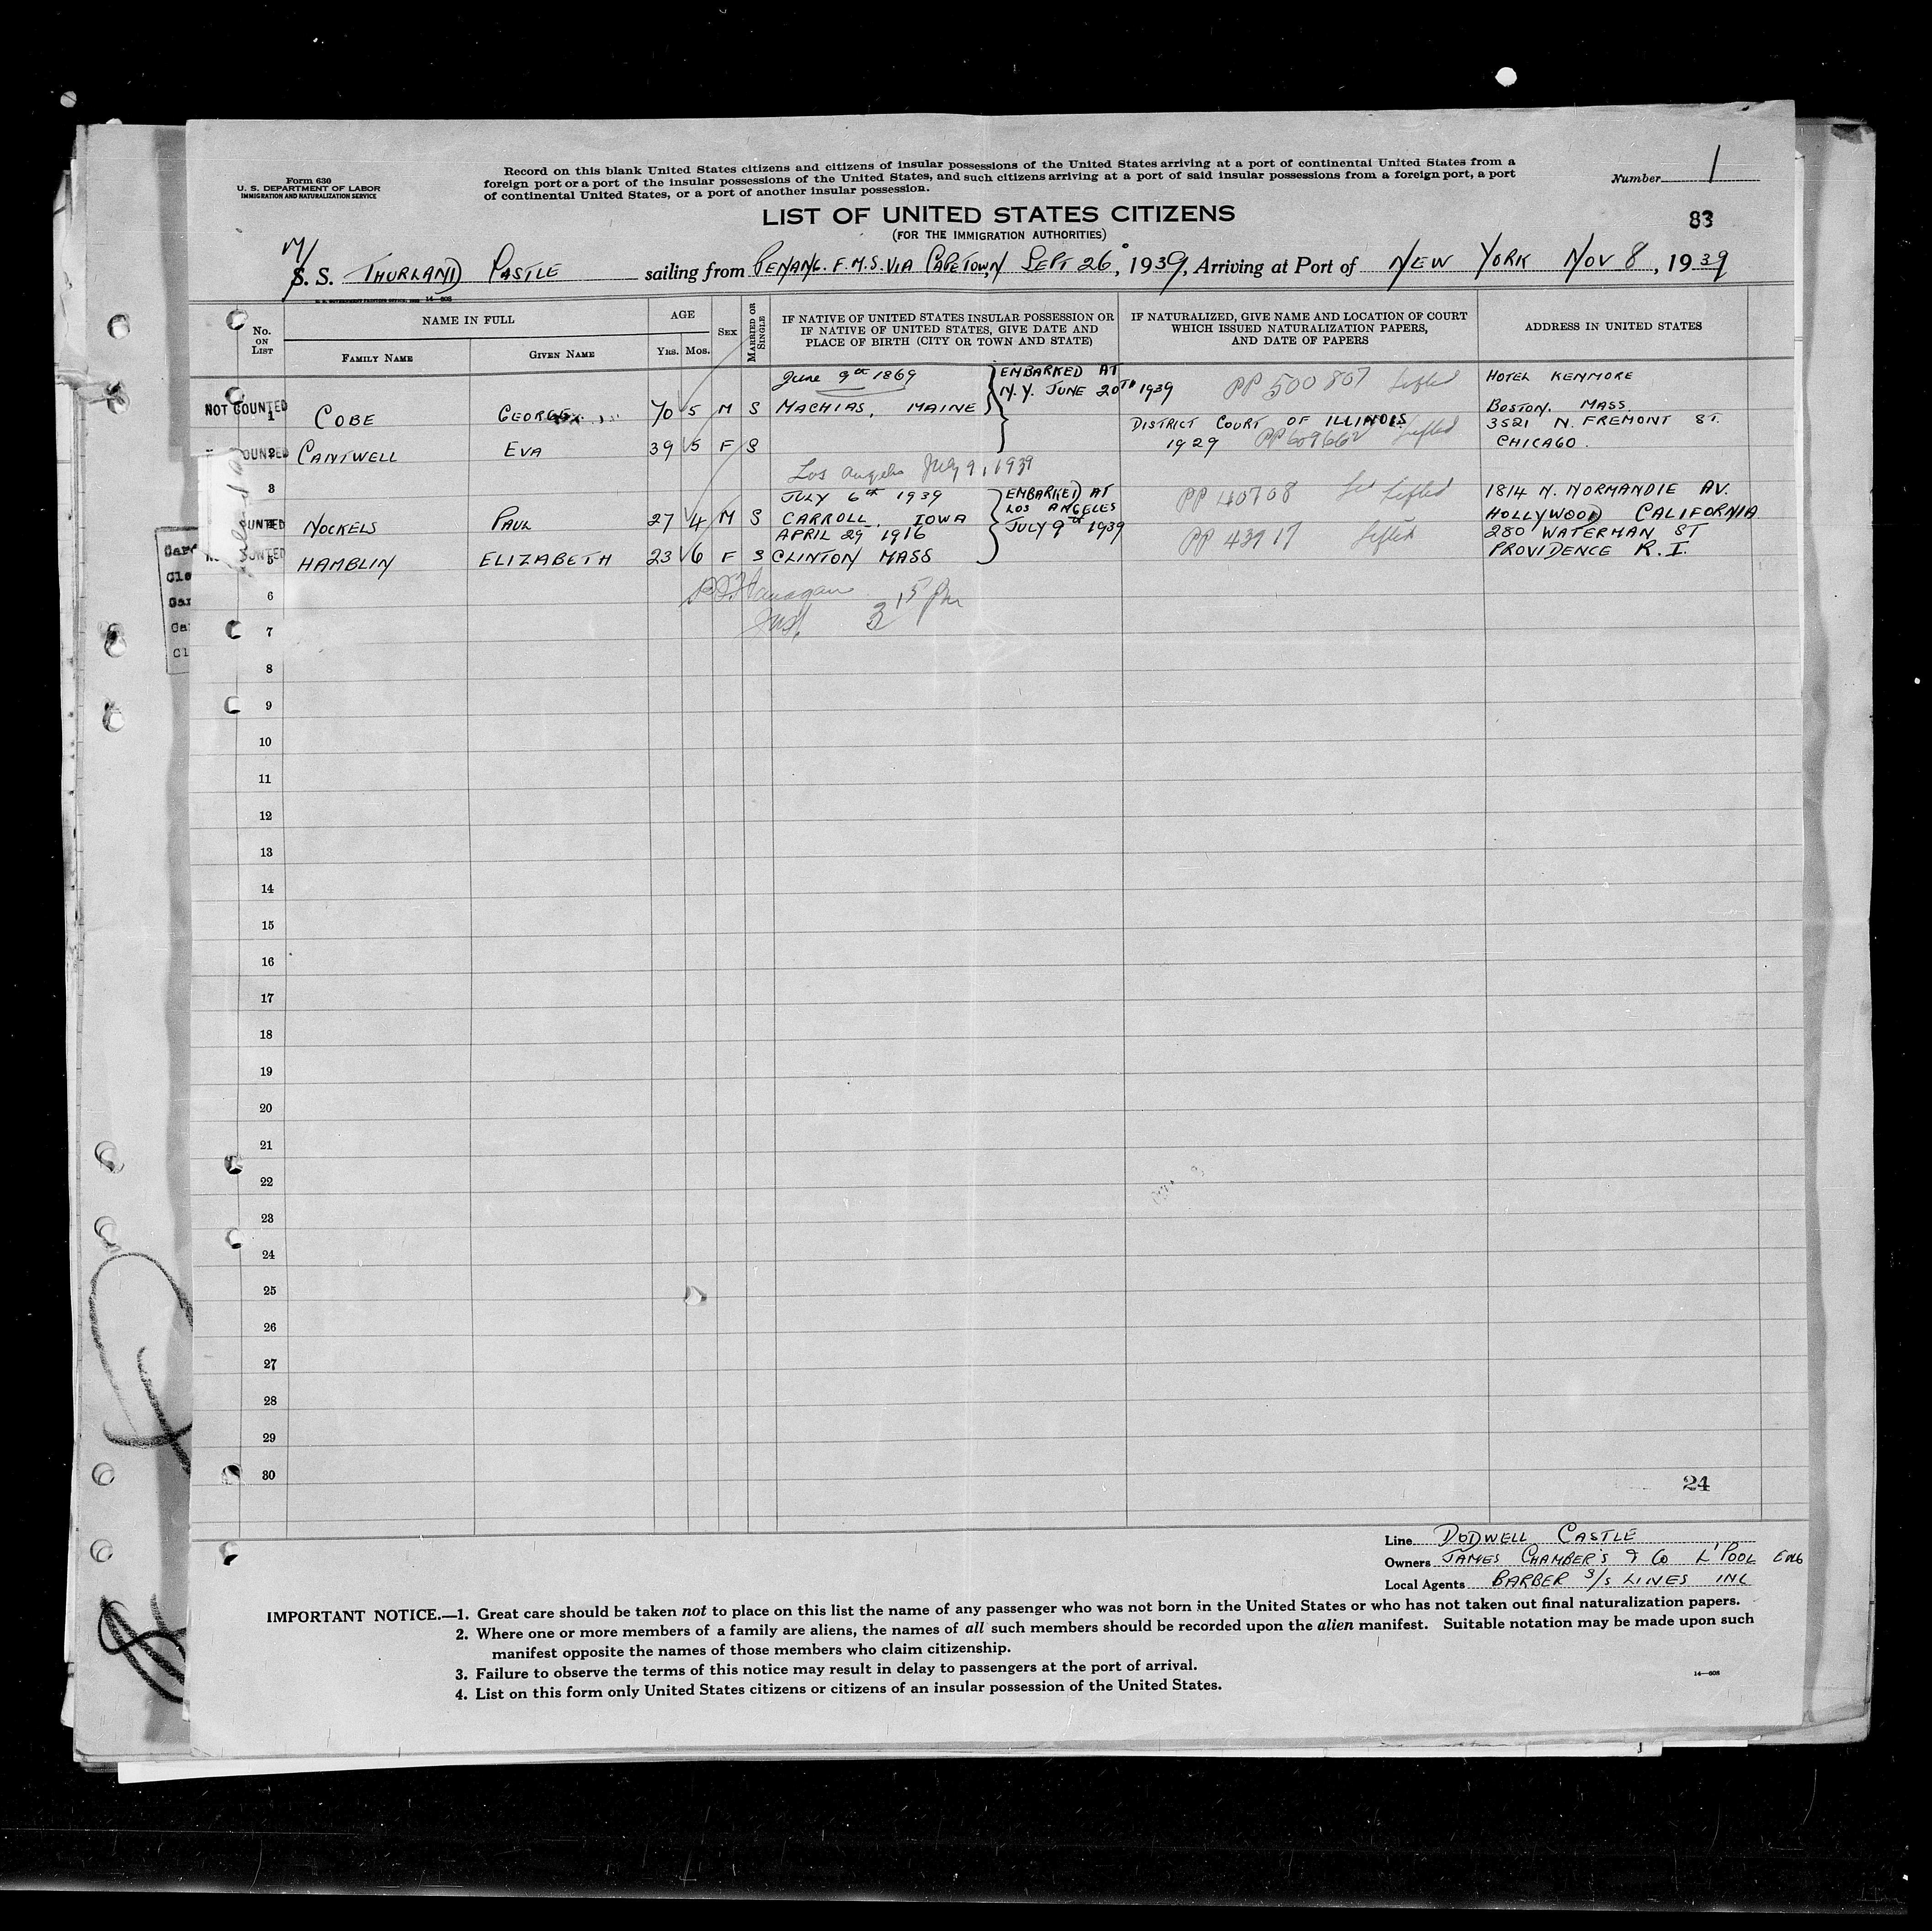 Form 630
U. S. DEPARTMENT OF LABOR
IMMIGRATION AND NATURALIZATION SERVICE
Record on this blank United States citizens and citizens of insular possessions of the United States arriving at a port of continental United States from a
foreign port or a port of the insular possessions of the United States, and such citizens arriving at a port of said insular possessions from a foreign port, a port
of continental United States, or a port of another insular possession.
Number 1
LIST OF UNITED STATES CITIZENS
83
(FOR THE IMMIGRATION AUTHORITIES)
M/
S. S. THURLAND CASTLE sailing from PENANG. F.M.S. VIA CAPETOWN SEPT 26, 1939, Arriving at Port of NEW YORK NOV 8, 1939
14—608
No. ON LIST
NAME IN FULL
FAMILY NAME GIVEN NAME
AGE
YRS. MOS.
SEX
MARRIED OR SINGLE
IF NATIVE OF UNITED STATES INSULAR POSSESSION OR
IF NATIVE OF UNITED STATES, GIVE DATE AND
PLACE OF BIRTH (CITY OR TOWN AND STATE)
IF NATURALIZED, GIVE NAME AND LOCATION OF COURT
WHICH ISSUED NATURALIZATION PAPERS,
AND DATE OF PAPERS
ADDRESS IN UNITED STATES
June 9th 1869 EMBARKED AT PP 500807 Lifted HOTEL KENMORE
NOT COUNTED 1 COBE GEORGE 70 5 M S MACHIAS, MAINE N.Y. JUNE 20TH 1939 BOSTON. MASS.
DISTRICT COURT OF ILLINOIS 3521 N. FREMONT ST.
OUNTED 2 CANTWELL EVA 39 5 F S 1929 PP 609662 Lifted CHICAGO.
3 Los Angeles July 9, 1939
JULY 6th 1939 EMBARKED AT PP 40708 Lifted 1814 N. NORMANDIE AV.
UNTED NOCKELS PAUL 27 4 M S CARROLL, IOWA LOS ANGELES HOLLYWOOD CALIFORNIA
APRIL 29 1916 JULY 9th 1939 PP 43917 Lifted 280 WATERMAN ST
UNTED 5 HAMBLIN ELIZABETH 23 6 F S CLINTON MASS PROVIDENCE R.I.
6
7
8
9
10
11
12
13
14
15
16
17
18
19
20
21
22
23
24
25
26
27
28
29
30
24
Line DODWELL CASTLE
Owners JAMES CHAMBER'S & CO L'POOL ENG
Local Agents BARBER S/S LINES INC
IMPORTANT NOTICE.—1. Great care should be taken not to place on this list the name of any passenger who was not born in the United States or who has not taken out final naturalization papers.
2. Where one or more members of a family are aliens, the names of all such members should be recorded upon the alien manifest. Suitable notation may be made upon such
manifest opposite the names of those members who claim citizenship.
3. Failure to observe the terms of this notice may result in delay to passengers at the port of arrival.
4. List on this form only United States citizens or citizens of an insular possession of the United States.
14—608